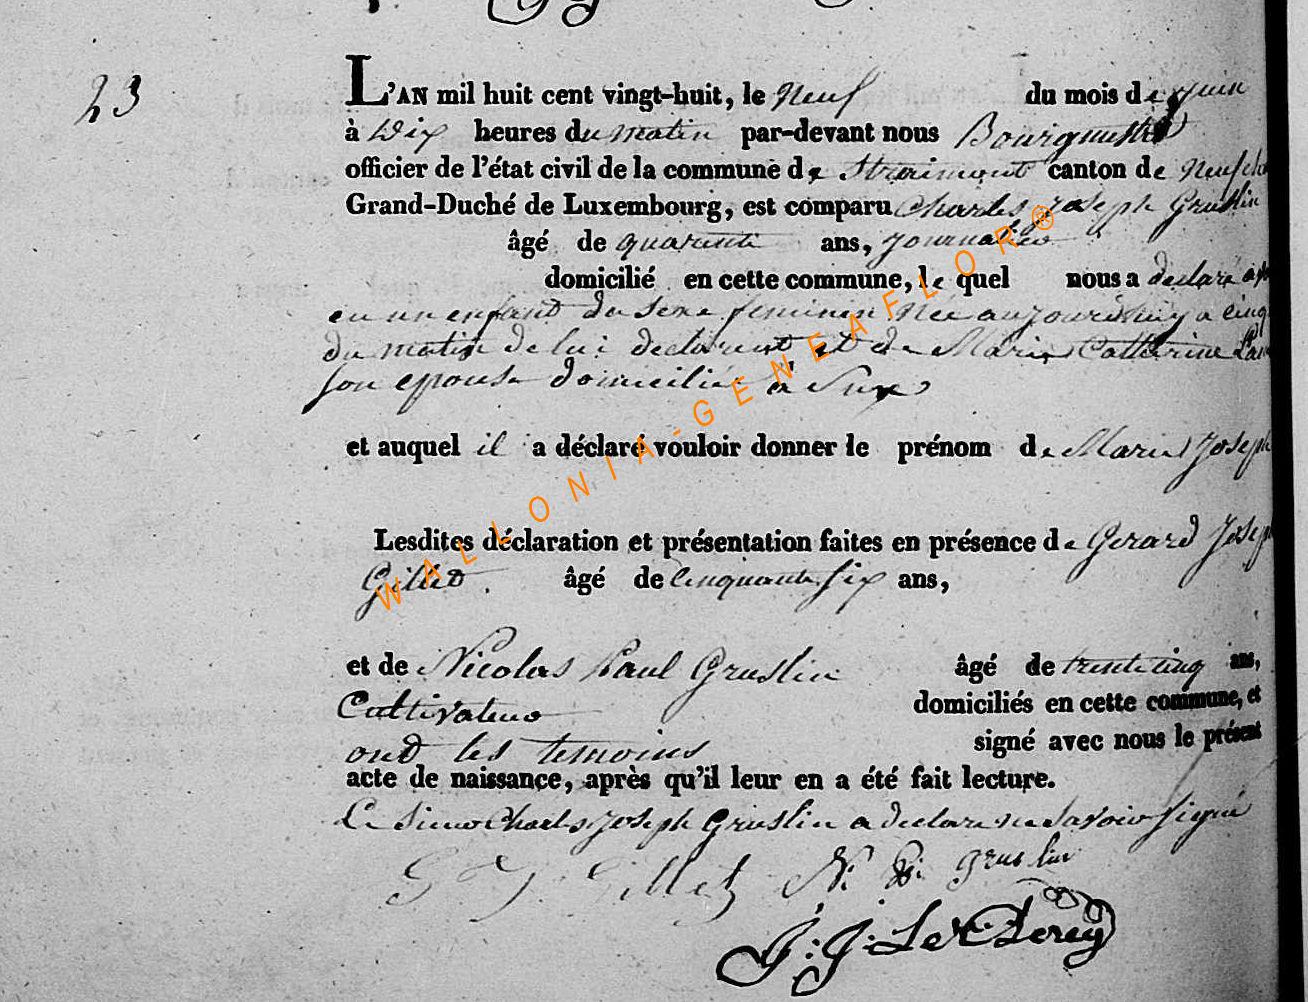 23
L'AN mil huit cent vingt-huit, le neuf du mois de juin
à Dix heures du matin par-devant nous Bourguemestre
officier de l'état civil de la commune de Straimont canton de
Grand-Duché de Luxembourg, est comparu Charles Joseph Gruslin
âgé de quarente ans, journalier
domicilié en cette commune, le quel nous a declaré
eu un enfant du sexe feminin née aujourdhuy a cinq
du matin de lui declarent et de Marie Catherine
son epouse domiciliée à Sux
et auquel il a déclaré vouloir donner le prénom de Marie Joseph
Lesdites déclaration et présentation faites en présence de Gerard Joseph
Gillet âgé de Cinquante six ans,
et de Nicolas Paul Gruslin âgé de trente cinq ans,
Cultivateur domiciliés en cette commune, et
ont les temoins signé avec nous le présent
acte de naissance, après qu'il leur en a été fait lecture.
Le sieur Charles Joseph Gruslin a declare ne savoir signé
G J Gillet N. P. gruslin
J: J. Le Clerey
WALLONIA-GENEAFLOR®